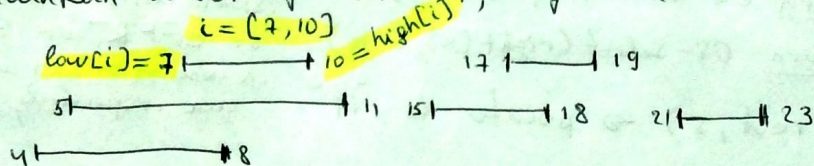 i = [7,10]
low[i] = 7 10 = high[i] 17 19
5 11 15 18 21 23
4 8